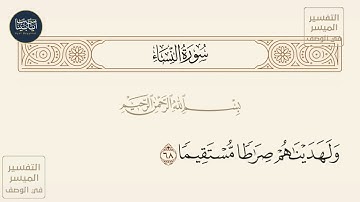 التفسير
الميسر
في الوصف
سُورَةُ النِّسَاءِ
بِسْمِ اللَّهِ الرَّحْمَٰنِ الرَّحِيمِ
وَلَهَدَيْنَاهُمْ صِرَاطًا مُّسْتَقِيمًا ٦٨
التفسير
الميسر
في الوصف